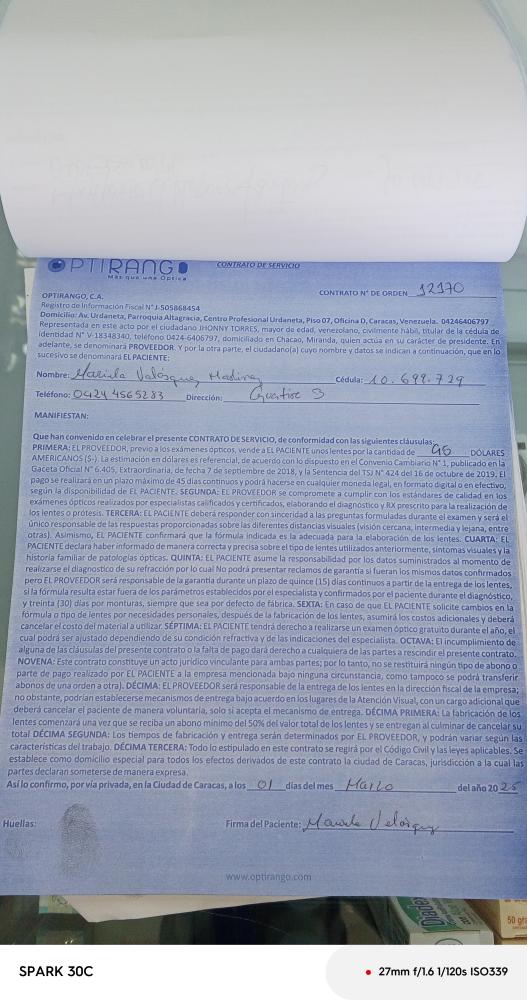 OPTIRANGO
Más que una Óptica
CONTRATO DE SERVICIO
CONTRATO N° DE ORDEN 12170
OPTIRANGO, C.A.
Registro de Información Fiscal N°J-505868454
Domicilio: Av. Urdaneta, Parroquia Altagracia, Centro Profesional Urdaneta, Piso 07, Oficina D, Caracas, Venezuela. 04246406797
Representada en este acto por el ciudadano JHONNY TORRES, mayor de edad, venezolano, civilmente hábil, titular de la cédula de
identidad N° V-18348340, teléfono 0424-6406797, domiciliado en Chacao, Miranda, quien actúa en su carácter de presidente. En
adelante, se denominará PROVEEDOR. Y por la otra parte, el ciudadano(a) cuyo nombre y datos se indican a continuación, que en lo
sucesivo se denominará EL PACIENTE:
Nombre: Mariela Velásquez Medina Cédula: 10.699.729
Teléfono: 0424 4565283 Dirección: 3
MANIFIESTAN:
Que han convenido en celebrar el presente CONTRATO DE SERVICIO, de conformidad con las siguientes cláusulas:
PRIMERA: EL PROVEEDOR, previo a los exámenes ópticos, vende a EL PACIENTE unos lentes por la cantidad de 96 DÓLARES
AMERICANOS ($-). La estimación en dólares es referencial, de acuerdo con lo dispuesto en el Convenio Cambiario N° 1, publicado en la
Gaceta Oficial N° 6.405, Extraordinaria, de fecha 7 de septiembre de 2018, y la Sentencia del TSJ N° 424 del 16 de octubre de 2019. El
pago se realizará en un plazo máximo de 45 días continuos y podrá hacerse en cualquier moneda legal, en formato digital o en efectivo,
según la disponibilidad de EL PACIENTE. SEGUNDA: EL PROVEEDOR se compromete a cumplir con los estándares de calidad en los
exámenes ópticos realizados por especialistas calificados y certificados, elaborando el diagnóstico y RX prescrito para la realización de
los lentes o prótesis. TERCERA: EL PACIENTE deberá responder con sinceridad a las preguntas formuladas durante el examen y será el
único responsable de las respuestas proporcionadas sobre las diferentes distancias visuales (visión cercana, intermedia y lejana, entre
otras). Asimismo, EL PACIENTE confirmará que la fórmula indicada es la adecuada para la elaboración de los lentes. CUARTA: EL
PACIENTE declara haber informado de manera correcta y precisa sobre el tipo de lentes utilizados anteriormente, síntomas visuales y la
historia familiar de patologías ópticas. QUINTA: EL PACIENTE asume la responsabilidad por los datos suministrados al momento de
realizarse el diagnóstico de su refracción por lo cual No podrá presentar reclamos de garantía si fueran los mismos datos confirmados
pero EL PROVEEDOR será responsable de la garantía durante un plazo de quince (15) días continuos a partir de la entrega de los lentes,
si la fórmula resulta estar fuera de los parámetros establecidos por el especialista y confirmados por el paciente durante el diagnóstico,
y treinta (30) días por monturas, siempre que sea por defecto de fábrica. SEXTA: En caso de que EL PACIENTE solicite cambios en la
fórmula o tipo de lentes por necesidades personales, después de la fabricación de los lentes, asumirá los costos adicionales y deberá
cancelar el costo del material a utilizar. SÉPTIMA: EL PACIENTE tendrá derecho a realizarse un examen óptico gratuito durante el año, el
cual podrá ser ajustado dependiendo de su condición refractiva y de las indicaciones del especialista. OCTAVA: El incumplimiento de
alguna de las cláusulas del presente contrato o la falta de pago dará derecho a cualquiera de las partes a rescindir el presente contrato.
NOVENA: Este contrato constituye un acto jurídico vinculante para ambas partes; por lo tanto, no se restituirá ningún tipo de abono o
parte de pago realizado por EL PACIENTE a la empresa mencionada bajo ninguna circunstancia, como tampoco se podrá transferir
abonos de una orden a otra). DÉCIMA: EL PROVEEDOR será responsable de la entrega de los lentes en la dirección fiscal de la empresa;
no obstante, podrían establecerse mecanismos de entrega bajo acuerdo en los lugares de la Atención Visual, con un cargo adicional que
deberá cancelar el paciente de manera voluntaria, solo si acepta el mecanismo de entrega. DÉCIMA PRIMERA: La fabricación de los
lentes comenzará una vez que se reciba un abono mínimo del 50% del valor total de los lentes y se entregan al culminar de cancelar su
total DÉCIMA SEGUNDA: Los tiempos de fabricación y entrega serán determinados por EL PROVEEDOR, y podrán variar según las
características del trabajo. DÉCIMA TERCERA: Todo lo estipulado en este contrato se regirá por el Código Civil y las leyes aplicables. Se
establece como domicilio especial para todos los efectos derivados de este contrato la ciudad de Caracas, jurisdicción a la cual las
partes declaran someterse de manera expresa.
Así lo confirmo, por vía privada, en la Ciudad de Caracas, a los 01 días del mes Marzo del año 2025
Huellas: Firma del Paciente: Mariela Velásquez
www.optirango.com
50 gra
SPARK 30C
27mm f/1.6 1/120s ISO339